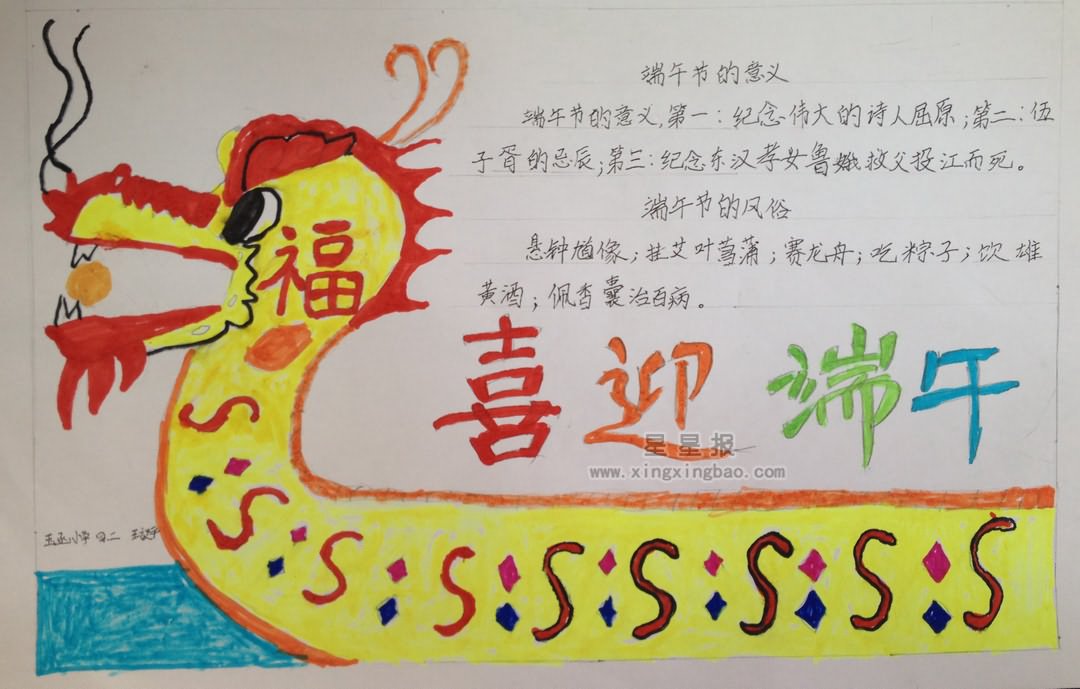 端午节的意义
端午节的意义,第一:纪念伟大的诗人屈原;第二:伍
子胥的忌辰;第三:纪念东汉孝女曹娥救父投江而死。
端午节的风俗
悬钟馗像;挂艾叶菖蒲;赛龙舟;吃粽子;饮雄
黄酒;佩香囊治百病。
福
喜迎端午
星星报
www.xingxingbao.com
小学 四二